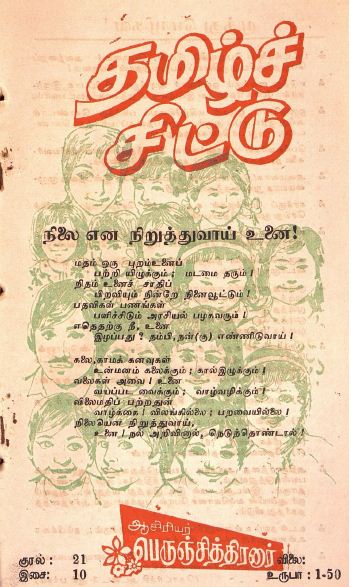 தமிழ்ச்
சிட்டு
நிலை என நிறுத்துவாய் உனை!
மதம் ஒரு புறம்உனைப்
பற்றி யிழுக்கும்; மடமை தரும்!
நிதம் உனைச் சாதிப்
பிறவியும் நின்றே நினைவூட்டும்!
பதவிகள் பணங்கள்
பளிச்சிடும் அரசியல் பழகவரும்!
எதெதற்கு நீ, உனை
இழப்பது? தம்பி,நன்(கு) எண்ணிடுவாய்!
கலை,காமக் கனவுகள்
உன்மனம் கலைக்கும்; கால்இழுக்கும்!
வலைகள் அவை! உனை
வயப்பட வைக்கும்; வாழ்வழிக்கும்!
விலைமதிப் பற்றதுன்
வாழ்க்கை! விலங்கில்லை; பறவையில்லை!
நிலையென நிறுத்துவாய்,
உனை! நல் அறிவினால், நெடுத்தொண்டால்!
ஆசிரியர்
பெருஞ்சித்திரனார்
குரல் : 21 விலை:
இசை: 10 உருபா : 1-50